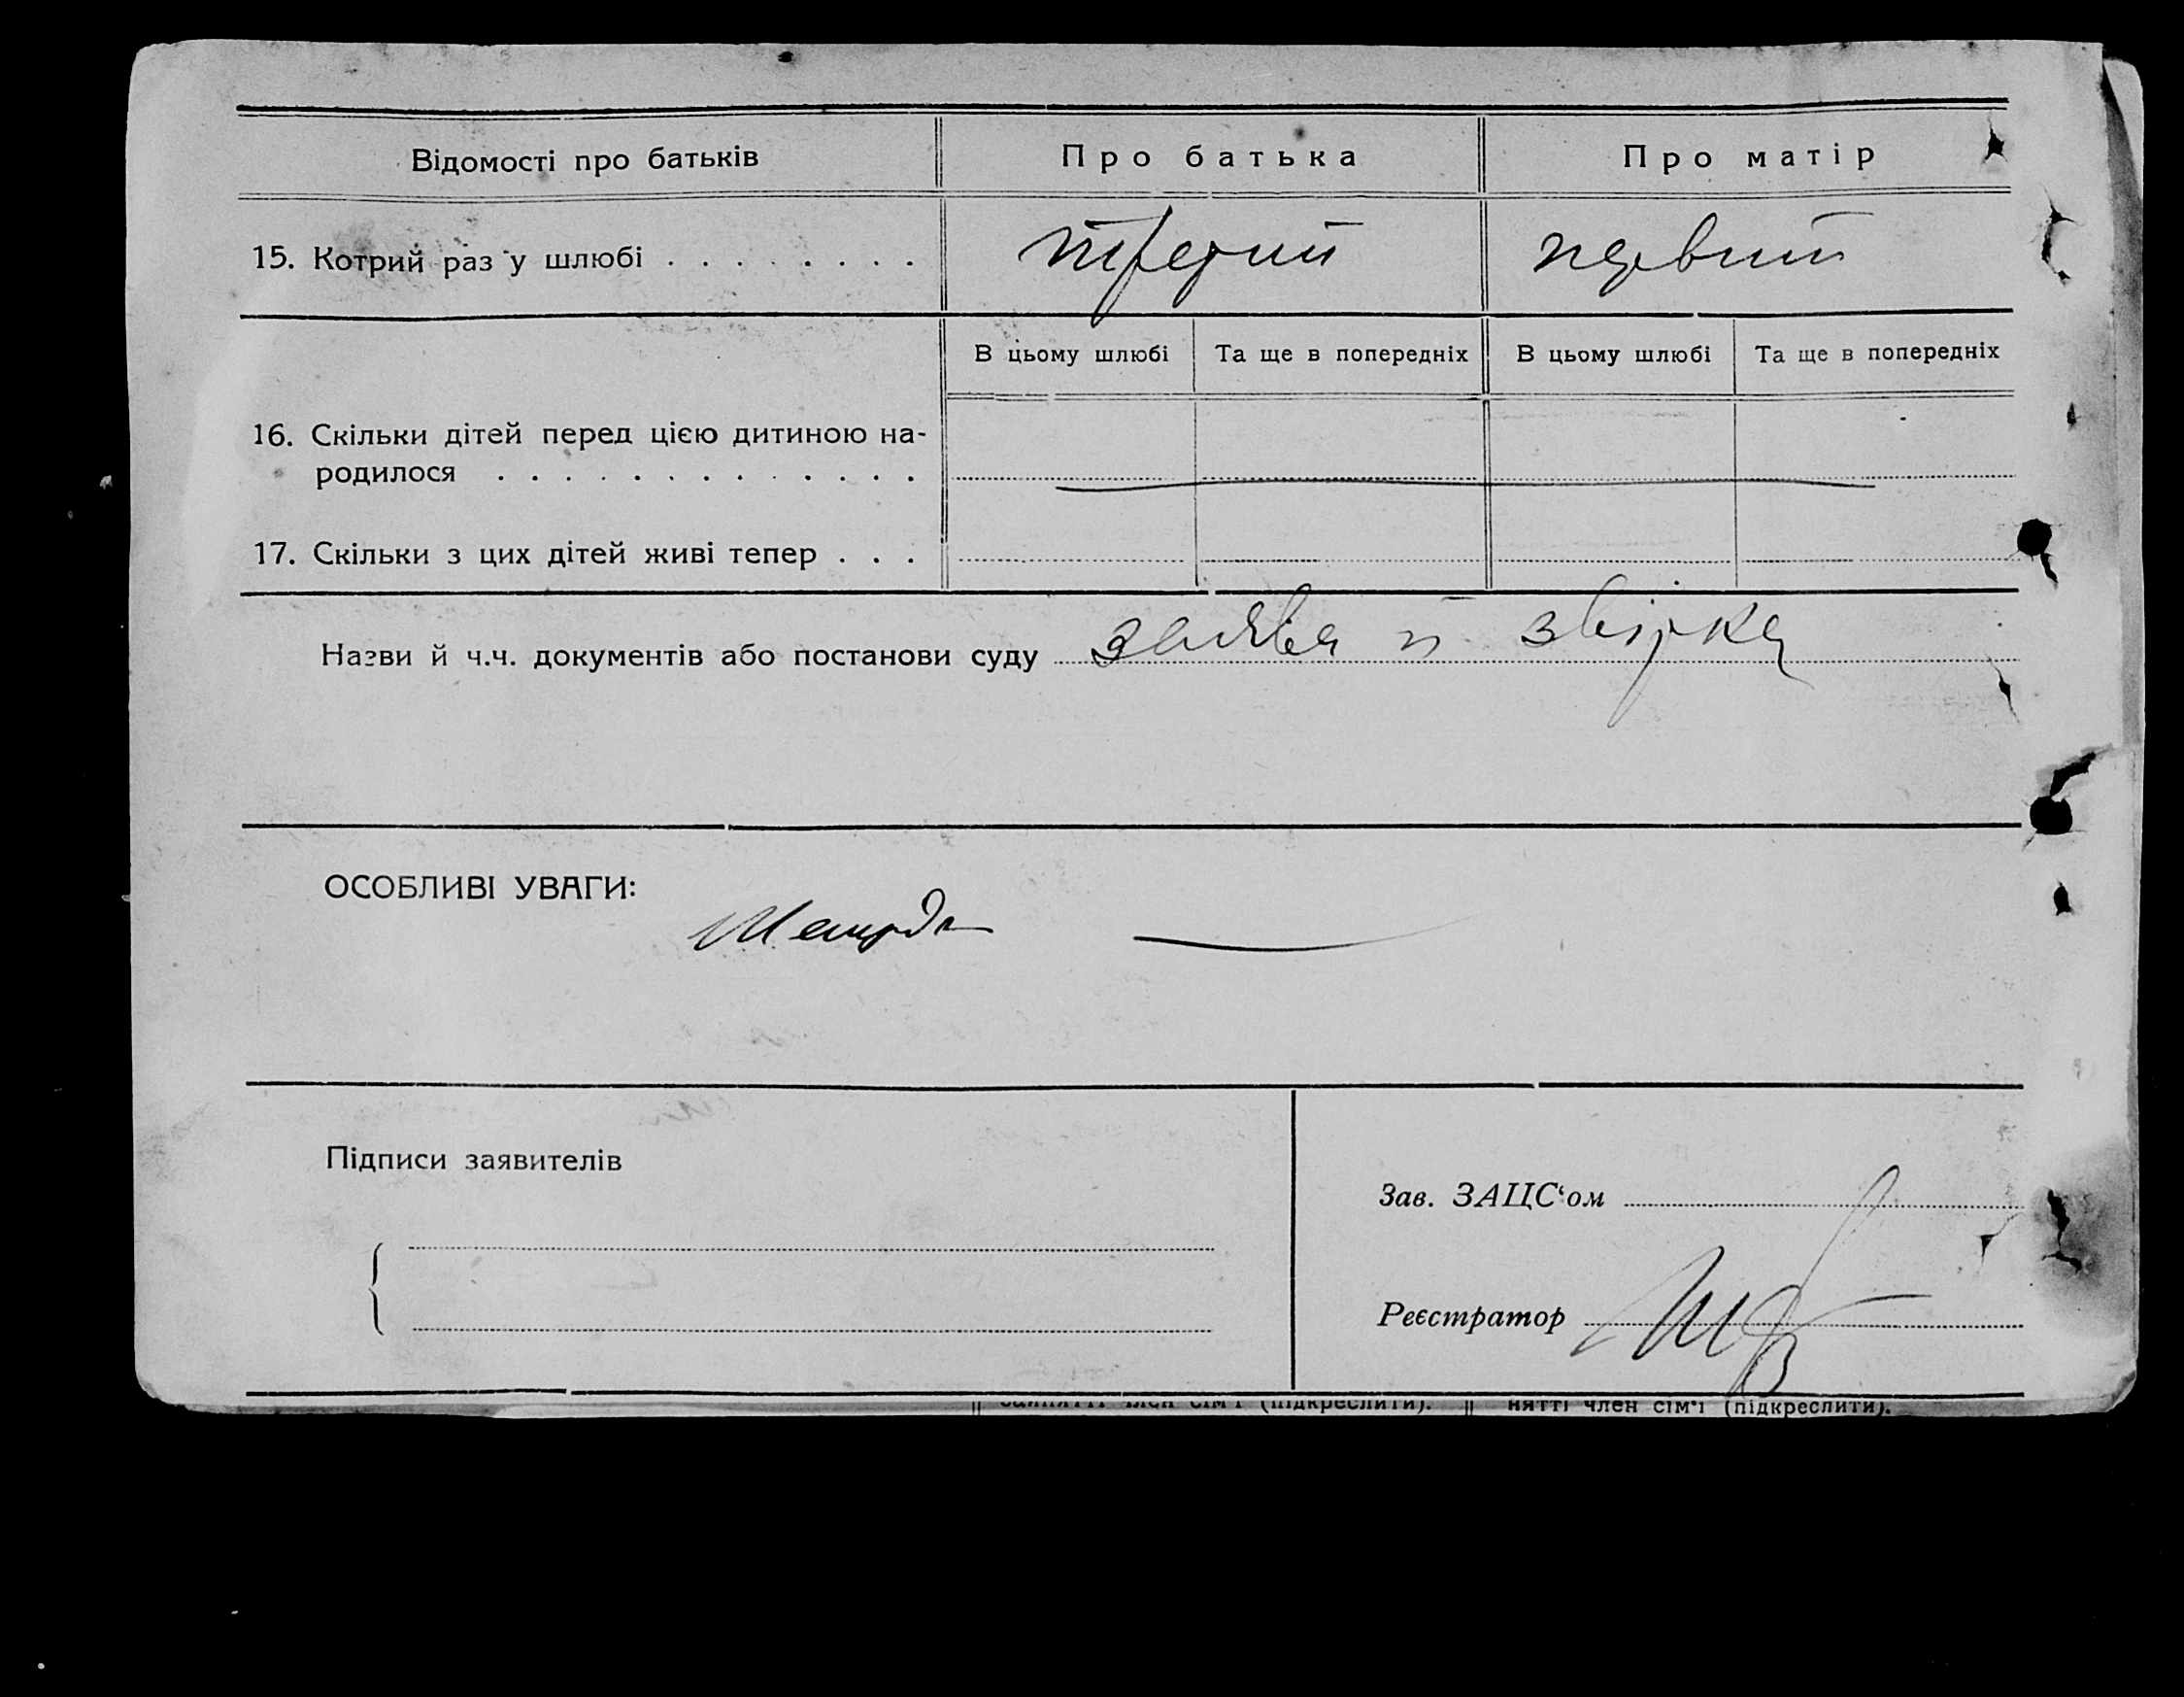 Відомості про батьків
Про батька
Про матір
15. Котрий раз у шлюбі . . . . . . . .
первий
В цьому шлюбі
Та ще в попередніх
В цьому шлюбі
Та ще в попередніх
16. Скільки дітей перед цією дитиною на-
родилося . . . . . . . . . . . . .
17. Скільки з цих дітей живі тепер . . .
Назви й ч.ч. документів або постанови суду заява й звірка
ОСОБЛИВІ УВАГИ:
Підписи заявителів
Зав. ЗАЦС‘ом
Реєстратор
член сім'ї (підкреслити).
нятті член сім'ї (підкреслити).